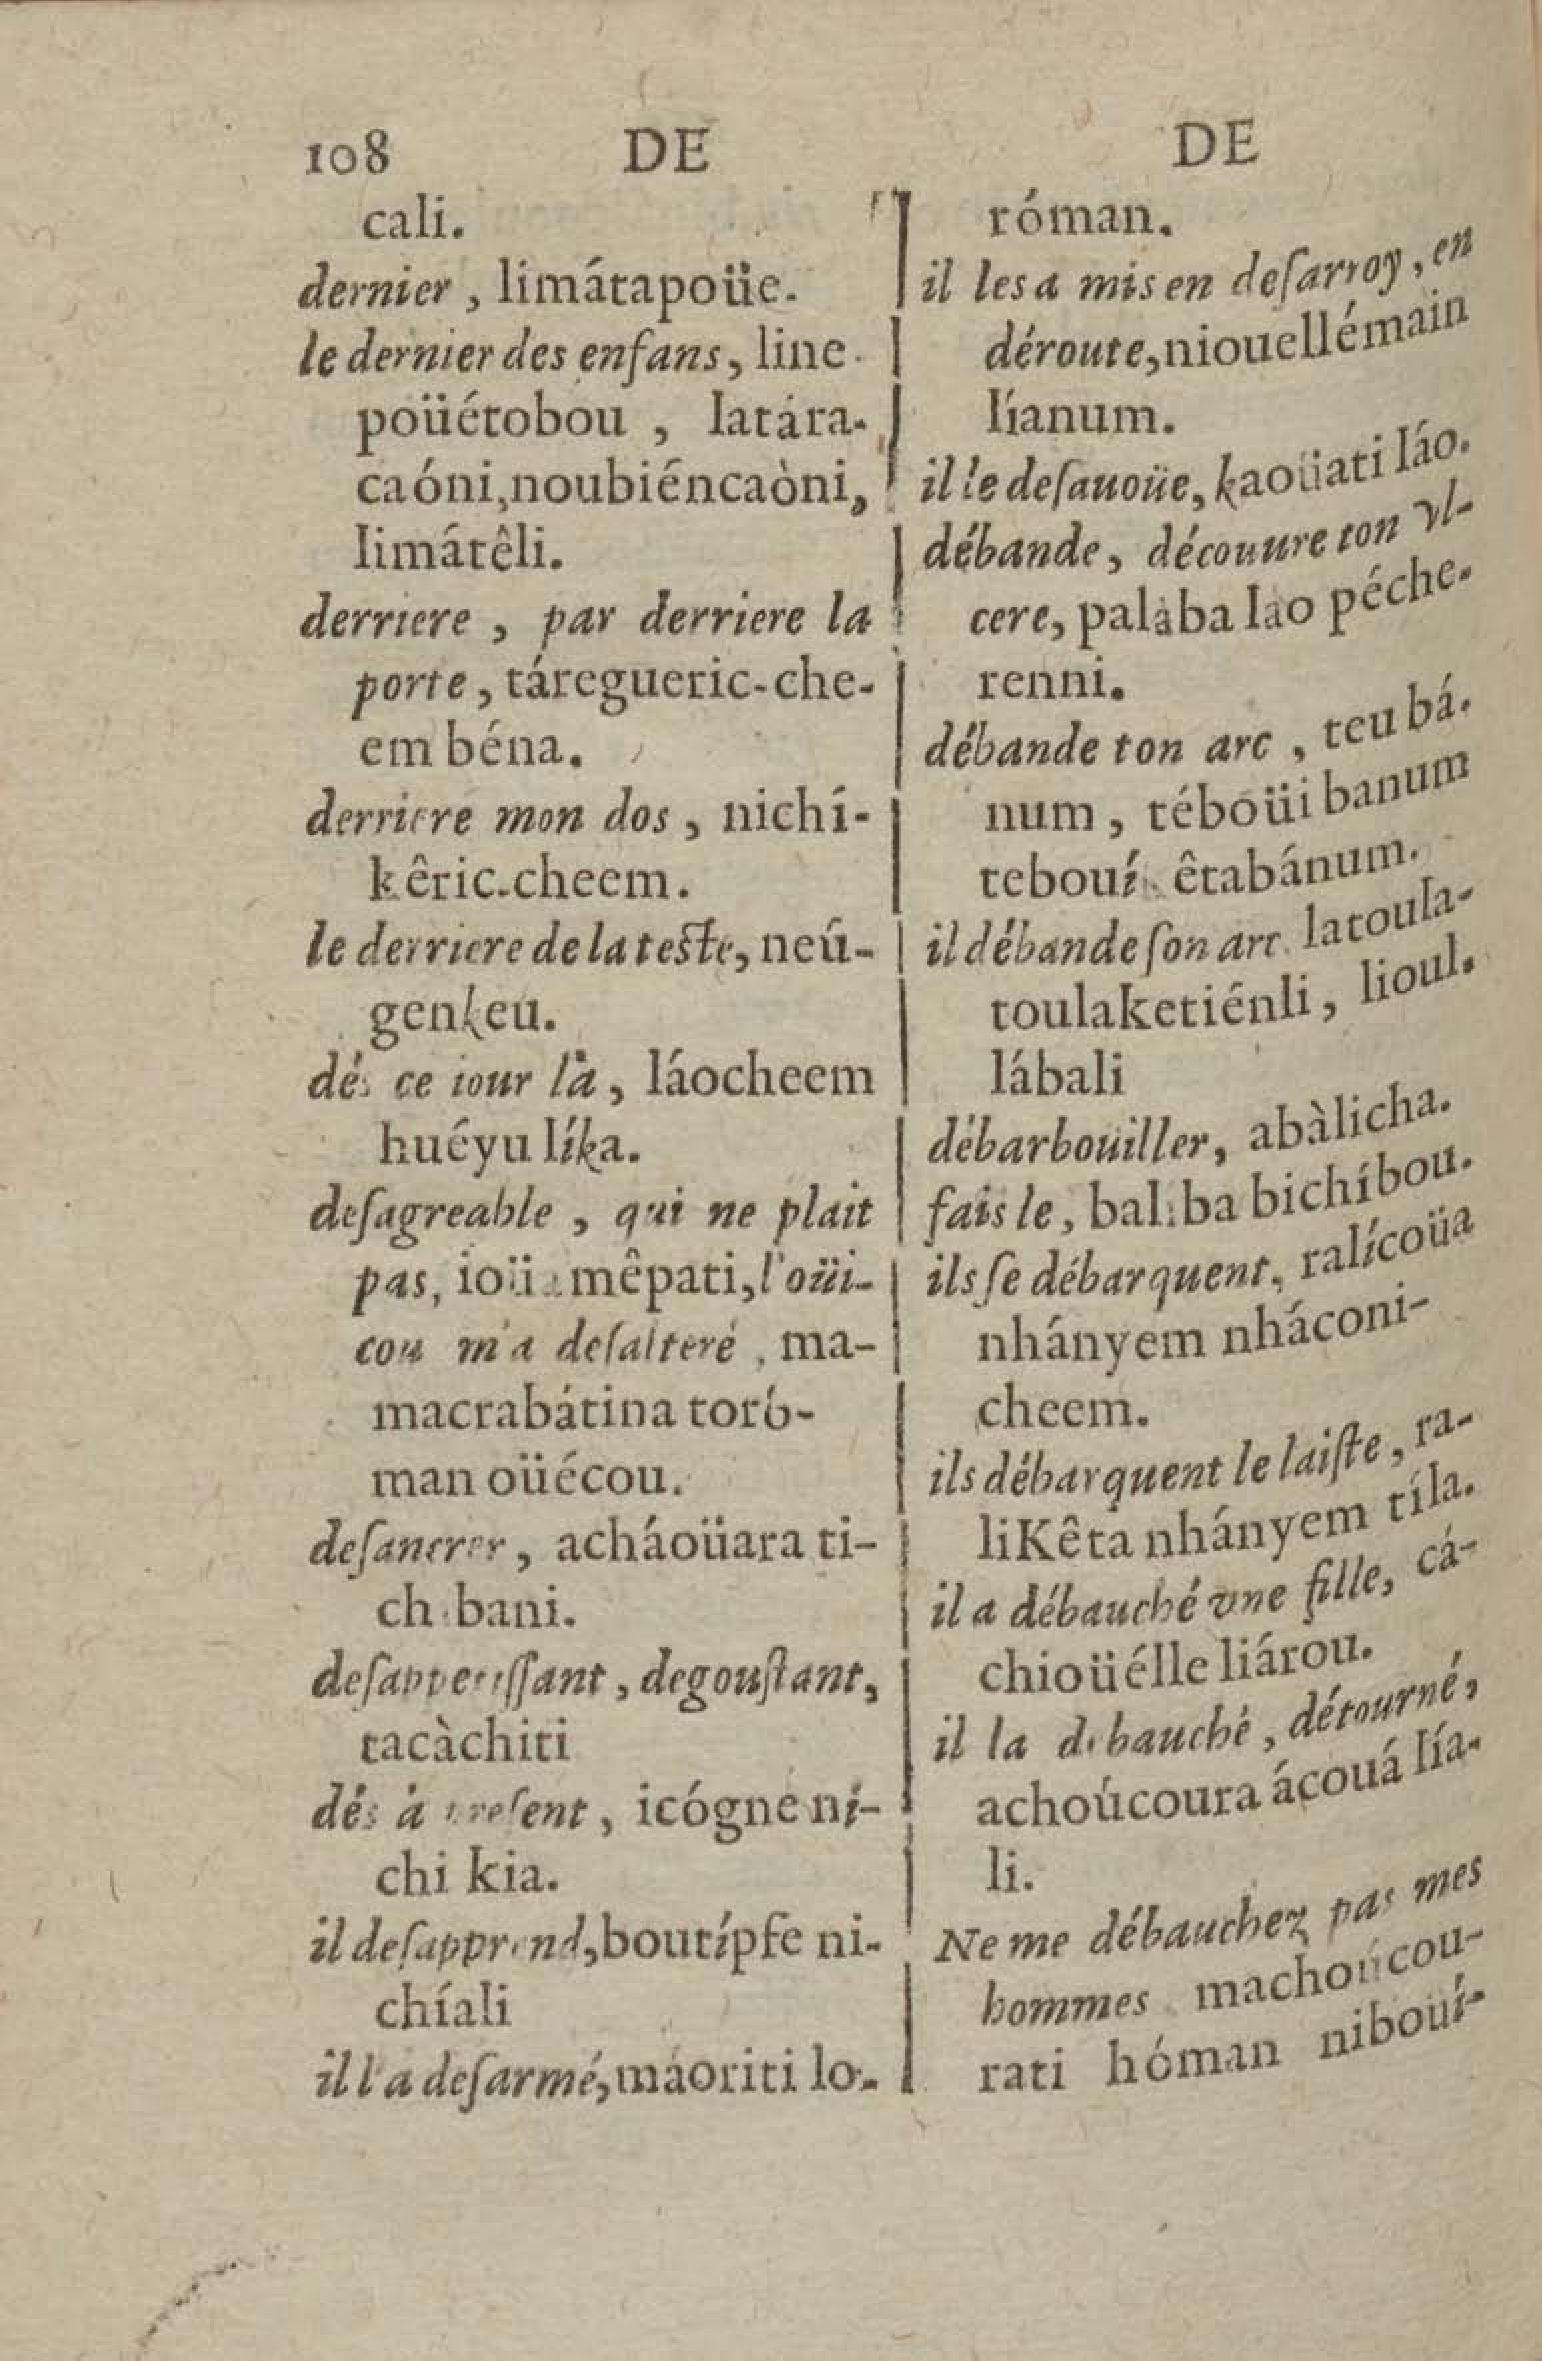 108 DE
cali.
dernier, limátapoüe.
le dernier des enfans, line
poüétobou, latára-
caóni, noubiéncaòni,
limátêli.
derriere, par derriere la
porte, táregueric-che-
em béna.
derriere mon dos, nichí-
kêric-cheem.
le derriere de la teste, neú-
genkeu.
dés ce iour là, láocheem
huéyu líka.
desagreable, qui ne plait
pas, mêpati, l'oüi-
cou m'a desalteré, ma-
macrabátina toró-
man oüécou.
desancrer, acháoüara ti-
bani.
desappetissant, degoustant,
tacàchiti
dés à present, icógne ní-
chi kia.
il desapprend, boutípfe ni-
chíali
il l'a desarmé, máoriti lo-
DE
róman.
il les a mis en desarroy, en
déroute, niouellémain
líanum.
il le desauoüe, kaoüati láo.
débande, découure ton vl-
cere, palába láo péche-
renni.
débande ton arc, teu bá-
num, téboüi banum
tebouí êtabánum.
il débande son arc. latoula-
toulaketiénli, lioul-
lábali
débarboüiller, abàlicha.
fais le, baliba bichíbou.
ils se débarquent, ralícoüa
nhányem nháconi-
cheem.
ils débarquent le laiste, ra-
liKêta nhányem tíla.
il a débauché vne fille, cá-
chioüélle liárou.
il la débauché, détourné,
achoúcoura ácouá lía-
li.
Ne me débauchez pas mes
hommes machoúcou-
rati hóman niboüí-